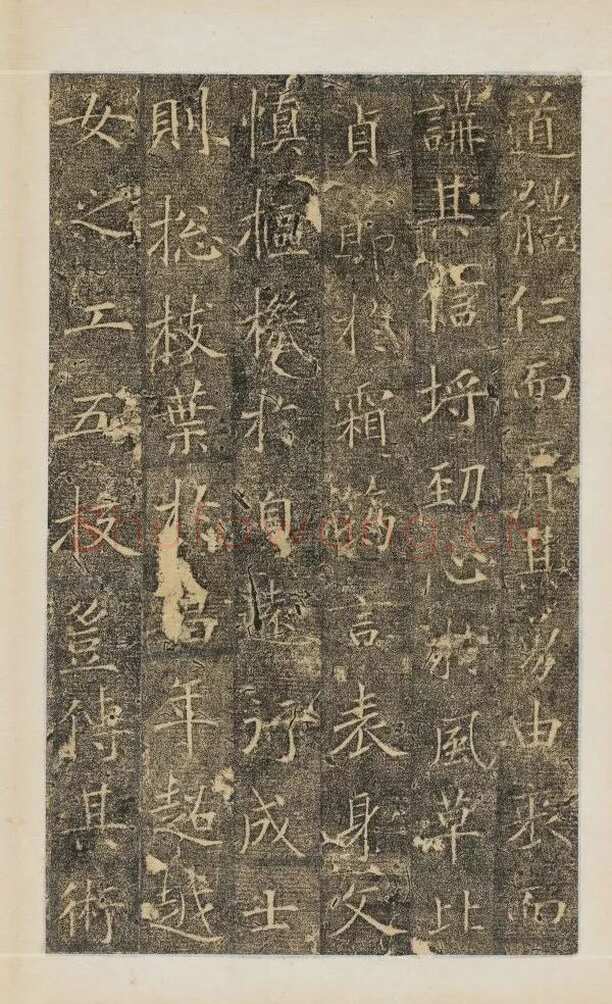 道體仁而其由衷而
講其信埒勁心於風草比
貞節於霜筠言表身文
慎樞機於自遠行成士
則捴枝葉於昌年超越
女之工五枝豈傳其術